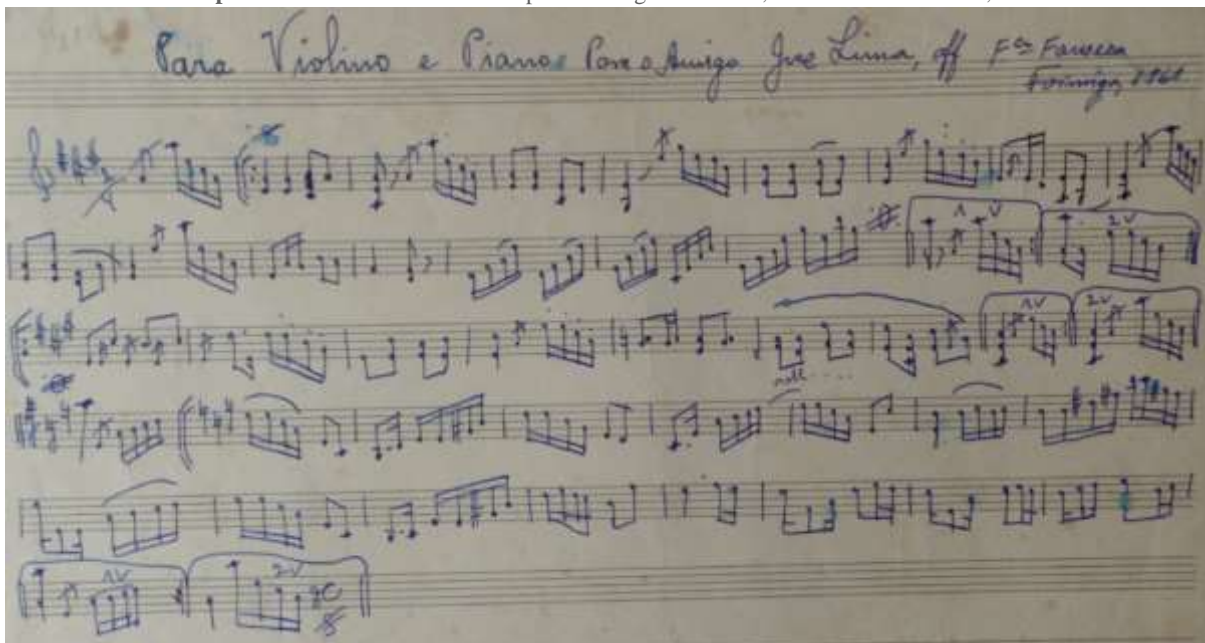 Para Violino e Piano Para o Amigo José Lima, off Fco Fonseca
Formiga, 1961
1 V 2 V
1 V 2 V
rall.....
1V 2V
DC